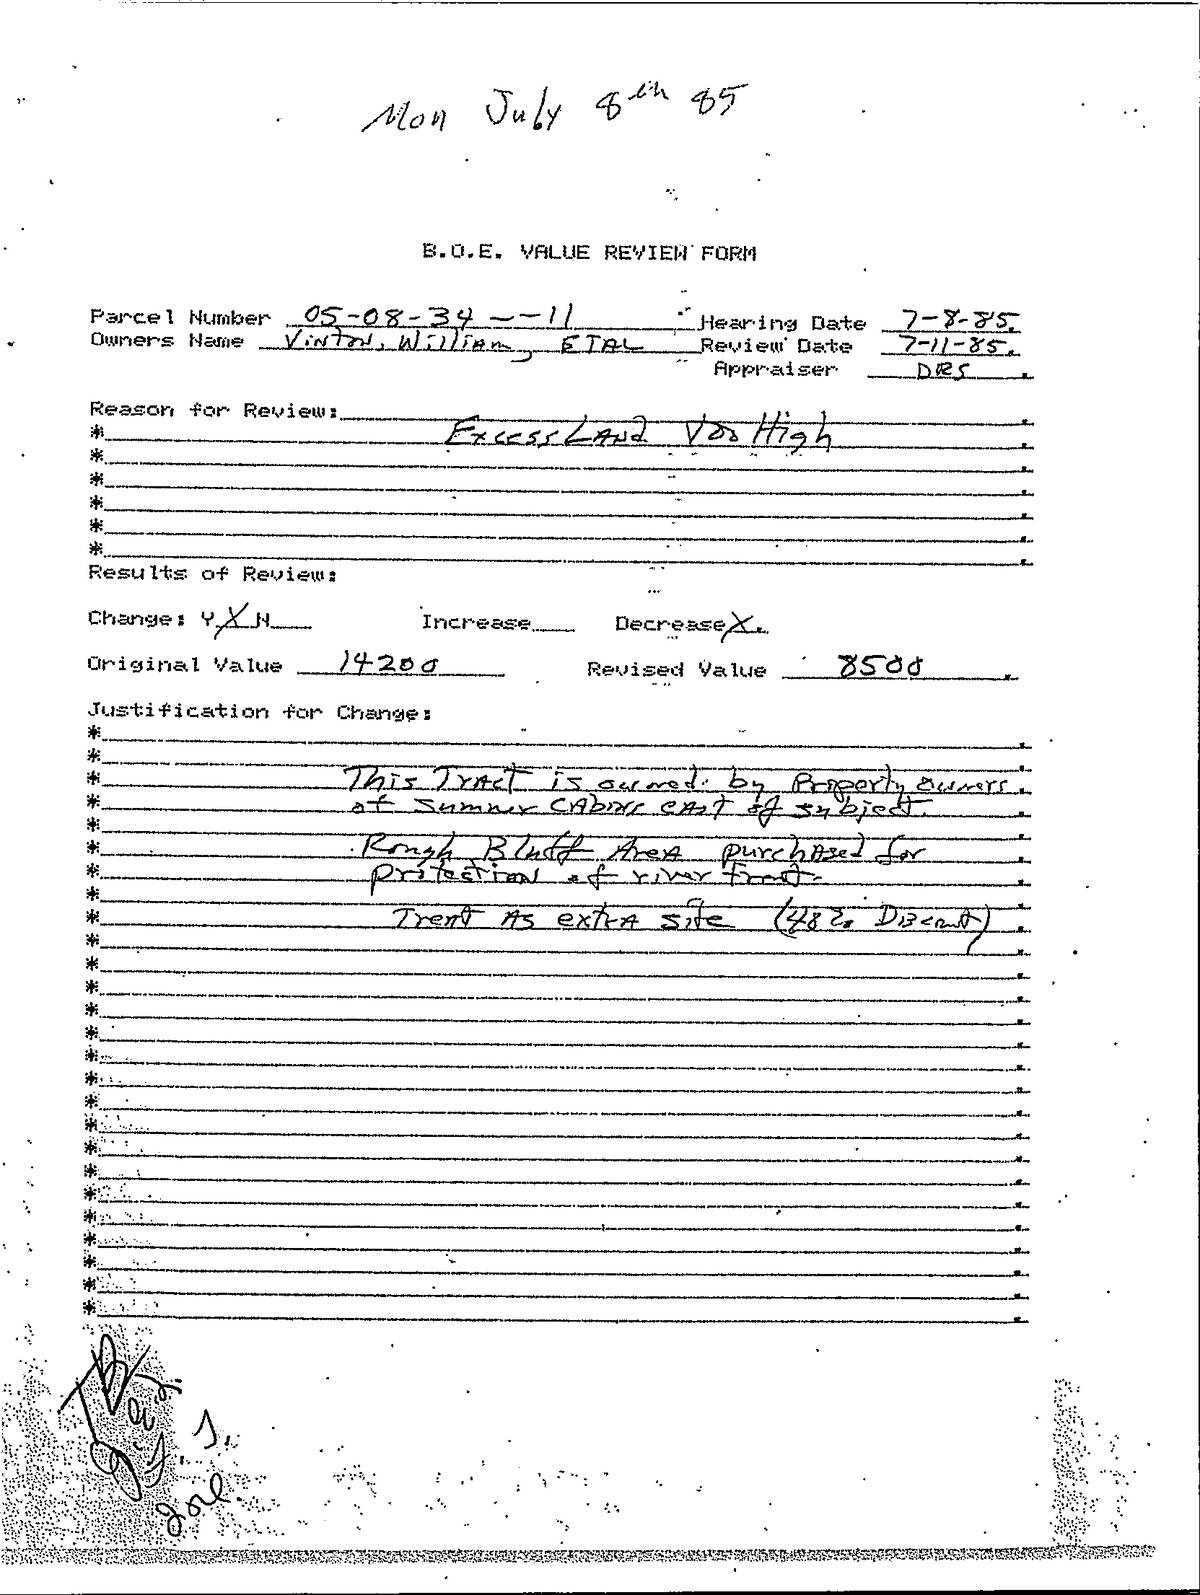 Mon July 8th 85
B.O.E. VALUE REVIEW FORM
Parcel Number 05-08-34 -- -11 Hearing Date 7-8-85.
Owners Name Vinton, William, ETAL Review Date 7-11-85.
Appraiser DRS.
Reason for Review:
* Excess Land Too High
*
*
*
*
*
Results of Review:
Change: Y X N Increase Decrease X.
Original Value 14200 Revised Value 8500
Justification for Change:
*
*
* This Tract is owned by Property owners
* of Summer Cabins east of subject.
*
* Rough Bluff Area purchased for
* protection of river front.
*
* Treat As extra site (48% Discount)
*
*
*
*
*
*
*
*
*
*
*
*
*
*
*
*
*
Joe